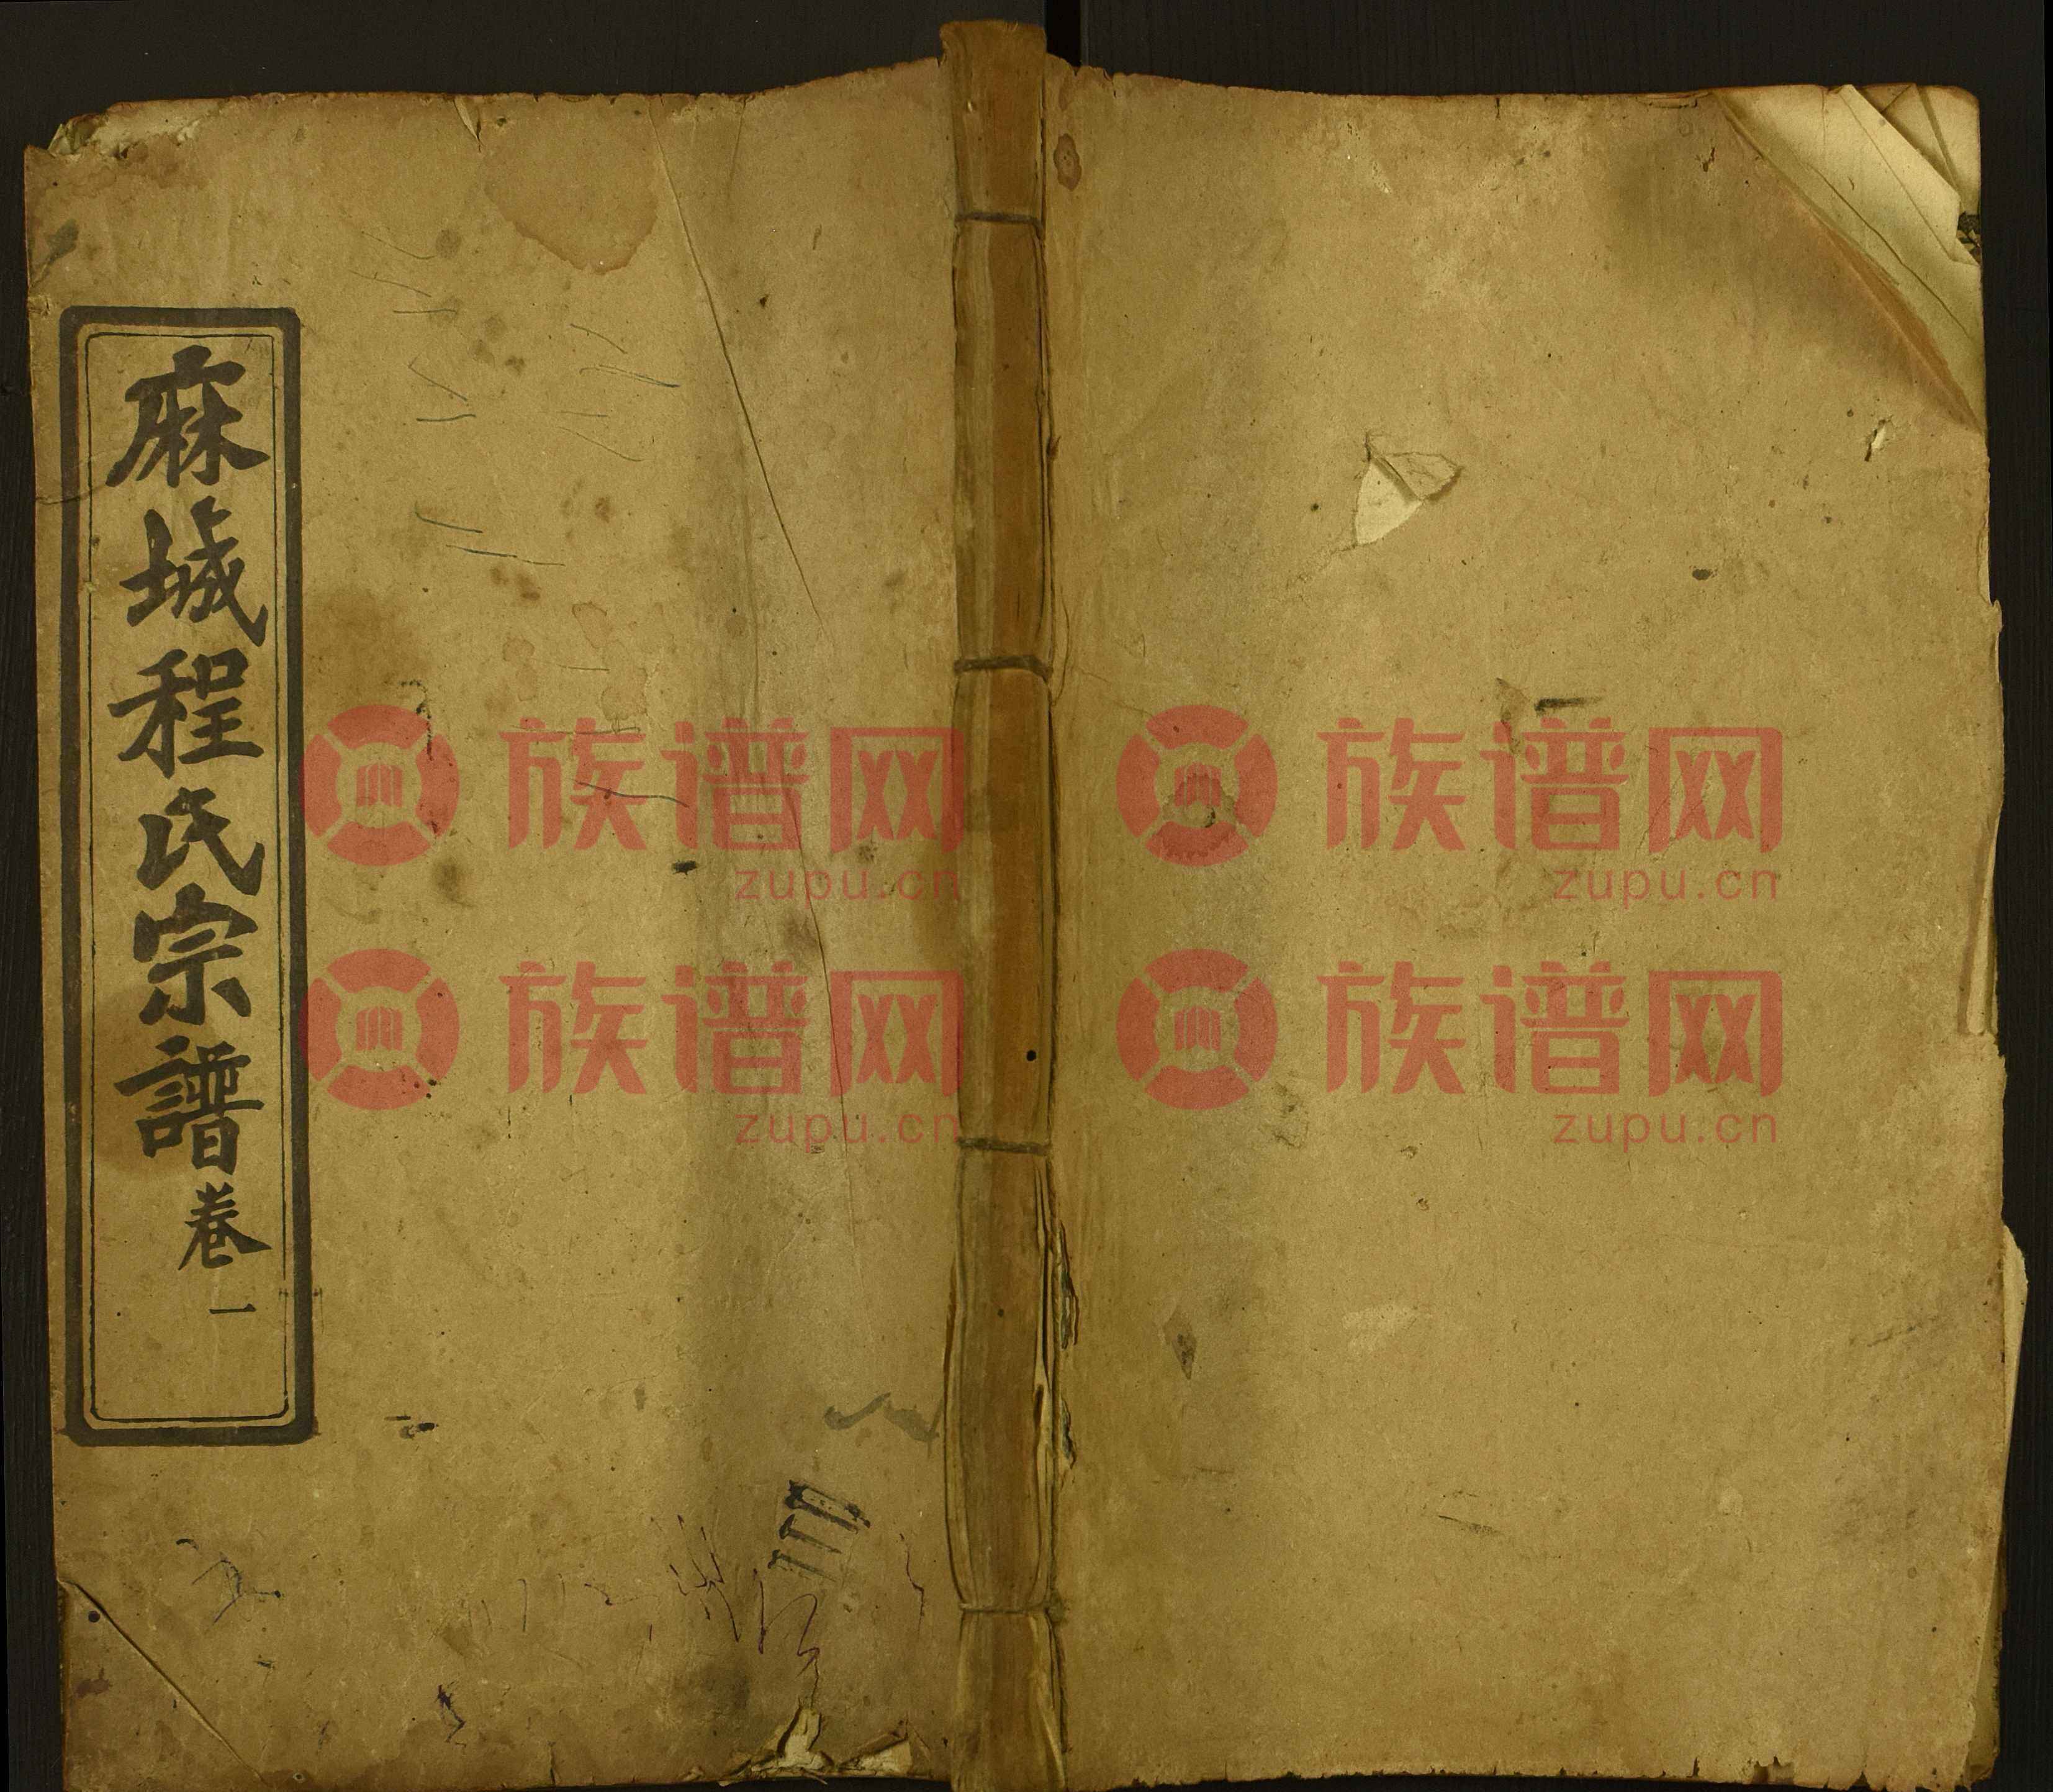 麻城程氏宗譜 卷一
族谱网
zupu.cn
族谱网
zupu.cn
族谱网
zupu.cn
族谱网
zupu.cn